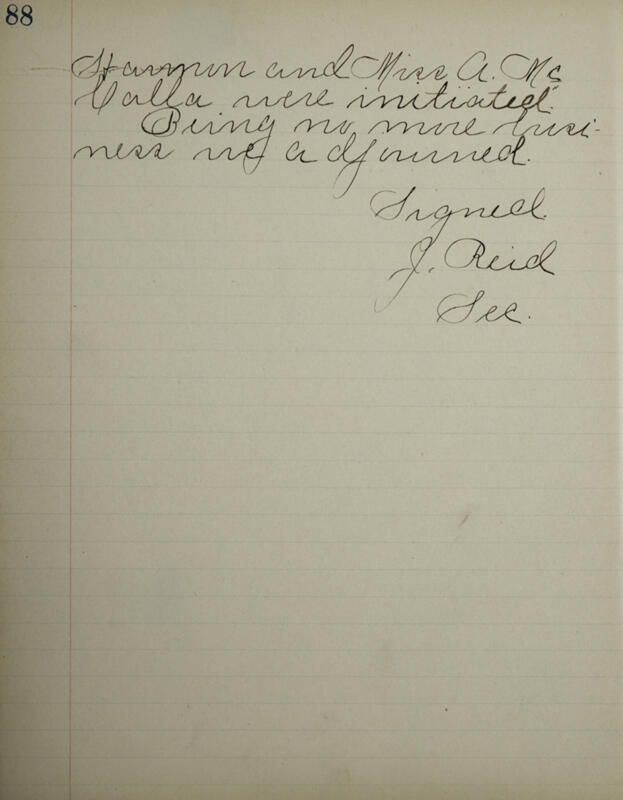 88
Harmon and Miss A. Mc
Calla were initiated.
Being no more busi-
ness we adjourned.
Signed.
J. Reid
Sec.